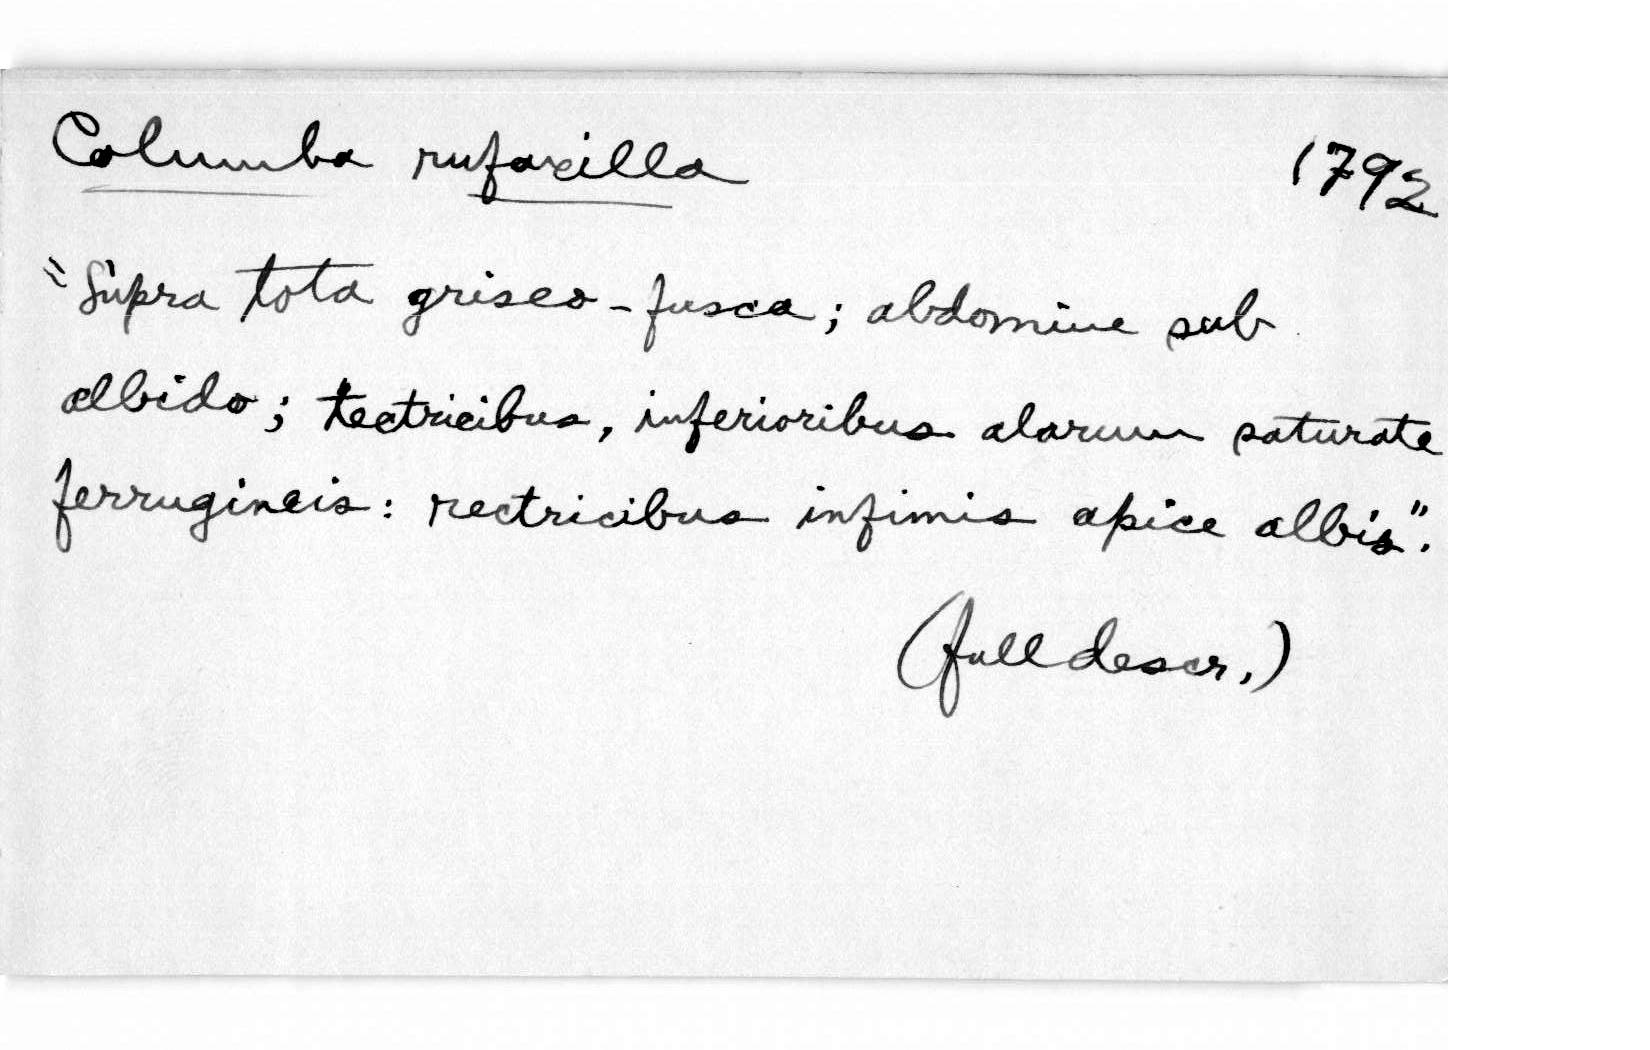 Columba rufaxilla 1792
"Supra tota griseo-fusca; abdomine sub
albido; tectricibus, inferioribus alarum saturate
ferrugineis: rectricibus infimis apice albis".
(full descr.)